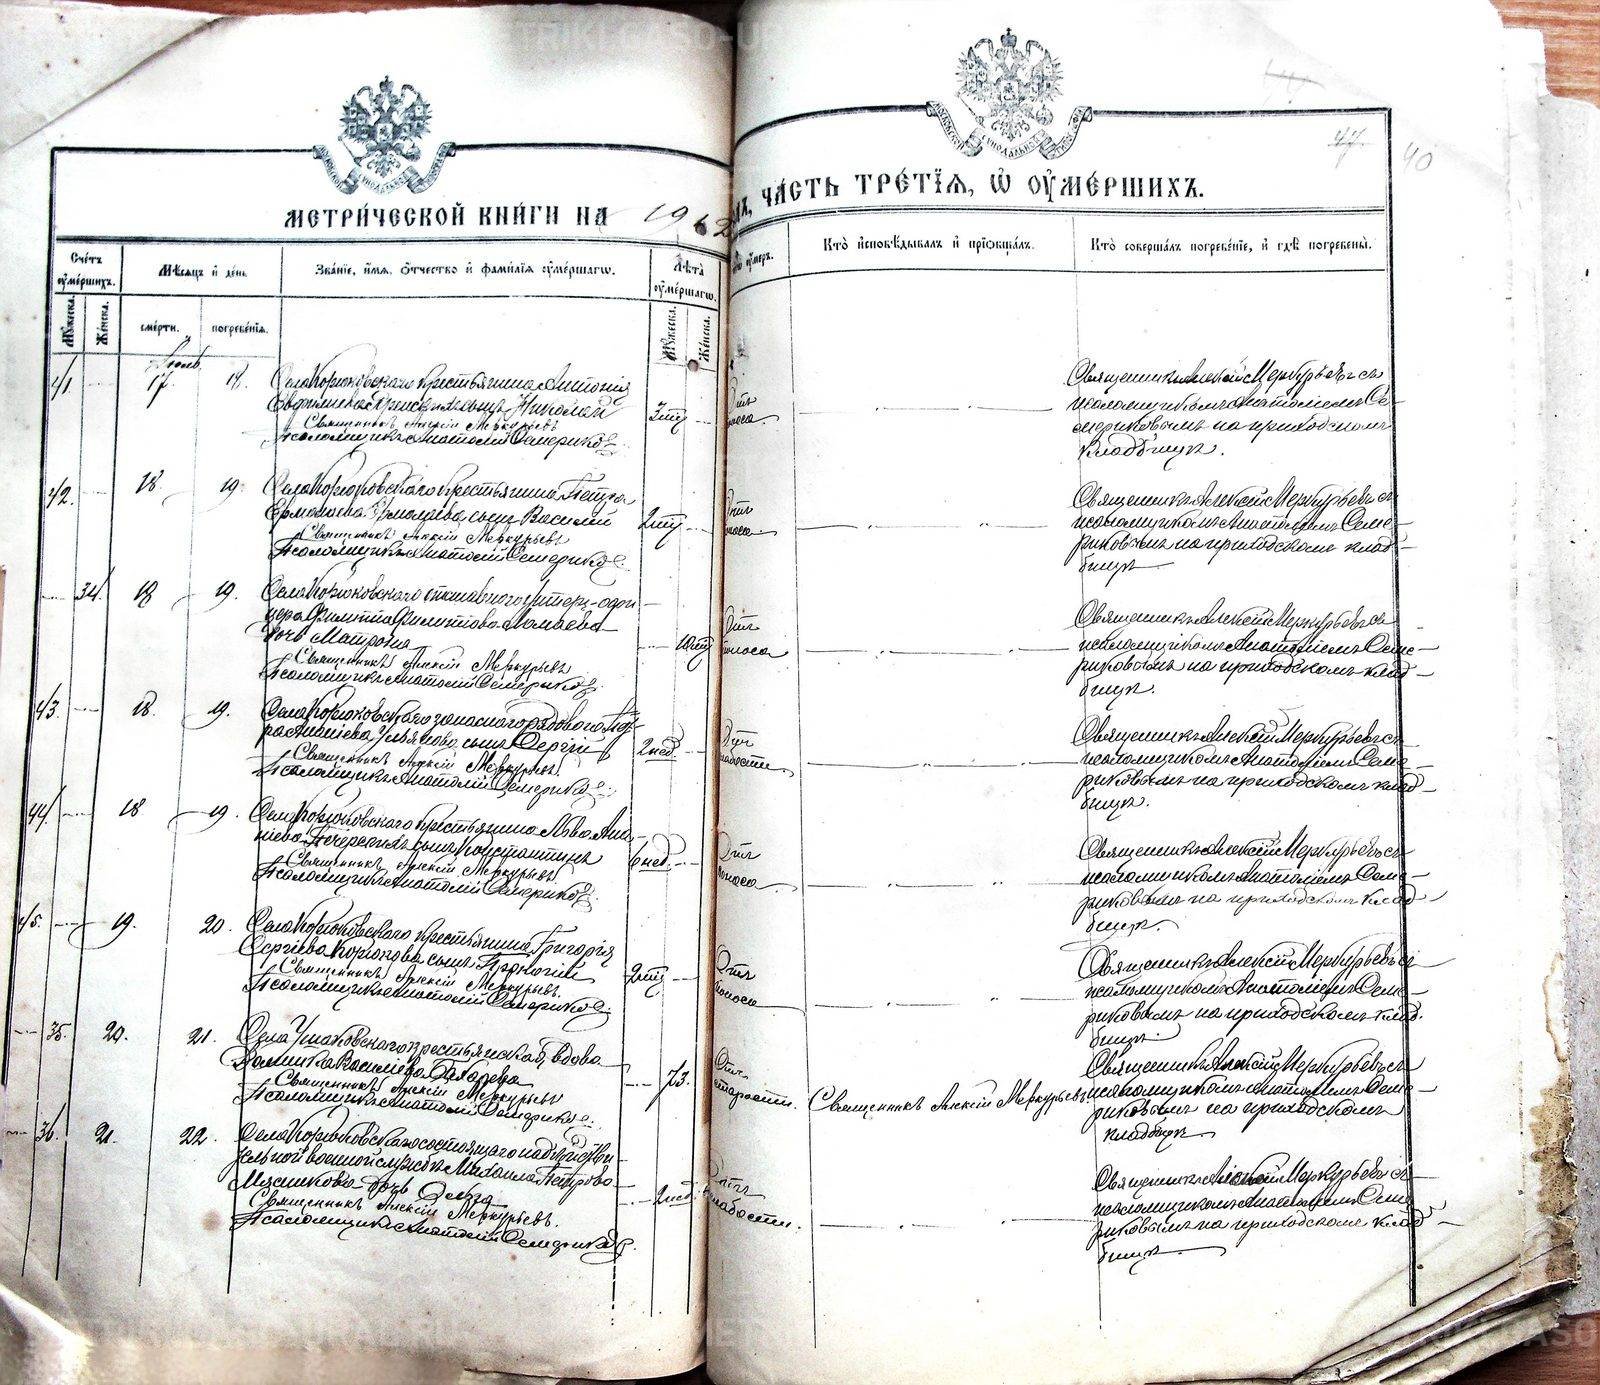 МЕТРИ́ЧЕСКОЙ КНИ́ГИ НА 1912
ЧА́СТЬ ТРЕ́ТІѦ, Ѡ ОУ҆МЕ́РШИХЪ.
47. 40
Сче́тъ оу҆ме́ршихъ.
Мѣ́сѧцъ и҆ де́нь
Зва́нїе, и҆́мѧ, ѻ҆́тчество и҆ фами́лїѧ оу҆ме́ршагѡ.
Лѣ́та оу҆ме́ршагѡ.
оу҆́меръ.
Кто̀ и҆сповѣ́дывалъ и҆ прїѡбща́лъ.
Кто̀ соверша́лъ погребе́нїе, и҆ гдѣ̀ погребены̀.
Мꙋ́жеска. Же́нска. сме́рти. погребе́нїѧ. Мꙋ́жеска. Же́нска.
Іюль
41. 17. 18. Села Корюковскаго крестьянина Антонія
сынъ Николай
Священникъ Алексій Меркурьевъ
Псаломщикъ Анатолій Семериков
3 мц
Отъ поноса.
Священникъ Алексій Меркурьевъ съ
псаломщикомъ Анатоліемъ Се-
мериковымъ на приходскомъ
кладбищѣ.
42. 18 19. Села Корюковскаго крестьянина Петра
сынъ Василій
Священникъ Алексій Меркурьевъ
Псаломщикъ Анатолій Семериков
2 мц
Отъ поноса.
Священникъ Алексій Меркурьевъ съ
псаломщикомъ Анатоліемъ Семе-
риковымъ на приходскомъ клад-
бищѣ
34. 18 19. Села Корюковскаго отставного унтеръ-офи-
цера Филиппа Филиппова
дочь Матрона
Священникъ Алексій Меркурьевъ
Псаломщикъ Анатолій Семериков
10 мц
Отъ поноса
Священникъ Алексій Меркурьевъ съ
псаломщикомъ Анатоліемъ Семе-
риковымъ на приходскомъ клад-
бищѣ.
43. 18. 19. Села Корюковскаго запаснаго рядового Пет-
ра Ананіева Ульянова сынъ Сергій
Священникъ Алексій Меркурьевъ
Псаломщикъ Анатолій Семериков
2 нед.
слабости
Священникъ Алексій Меркурьевъ съ
псаломщикомъ Анатоліемъ Семе-
риковымъ на приходскомъ клад-
бищѣ.
44. 18 19. Села Корюковскаго крестьянина Льва Ана-
ніева сынъ Константинъ
Священникъ Алексій Меркурьевъ
Псаломщикъ Анатолій Семериков
6 нед.
Отъ поноса
Священникъ Алексій Меркурьевъ съ
псаломщикомъ Анатоліемъ Семе-
риковымъ на приходскомъ клад-
бищѣ.
45. 19. 20. Села Корюковскаго крестьянина Григорія
Сергіева Корюкова сынъ Прокопій
Священникъ Алексій Меркурьевъ.
Псаломщикъ Анатолій Семериков
2 мц
Отъ поноса
Священникъ Алексій Меркурьевъ съ
псаломщикомъ Анатоліемъ Семе-
риковымъ на приходскомъ клад-
бищѣ
35. 20. 21. Села Ушаковскаго крестьянская вдова
Васильева
Священникъ Алексій Меркурьевъ
Псаломщикъ Анатолій Семериков
73.
Отъ старости.
Священникъ Алексій Меркурьевъ
Священникъ Алексій Меркурьевъ съ
псаломщикомъ Анатоліемъ Семе-
риковымъ на приходскомъ
кладбищѣ
36. 21. 22. Села Корюковскаго состоящаго на дѣйстви-
тельной военной службѣ Михаила Петрова
Мясникова дочь Ольга
Священникъ Алексій Меркурьевъ.
Псаломщикъ Анатолій Семериков
2 нед.
Отъ слабости.
Священникъ Алексій Меркурьевъ съ
псаломщикомъ Анатоліемъ Семе-
риковымъ на приходскомъ клад-
бищѣ